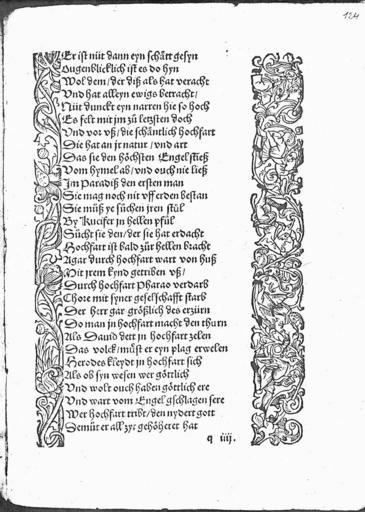 124
Er ist nüt dann eyn schätt gesyn
Ougenblicklich ist es do hyn
Wol dem / der diß als hat veracht
Vnd hat alleyn ewigs betracht /
Nüt dunckt eyn narren hie so hoch
Es felt mit jm zů letzsten doch
Vnd vor vß / die schäntlich hochfart
Die hat an jr natur / vnd art
Das sie den höchsten Engel stieß
Vom hymel ab / vnd ouch nie ließ
Jm Paradiß den ersten man
Sie mag noch nit vff erden bestan
Sie můß ye sůchen jren stůl
By Lucifer jn hellen pfůl
Sůcht sie den / der sie hat erdacht
Hochfart ist bald zůr hellen bracht
Agar durch hochfart wart von huß
Mit jrem kynd getriben vß /
Durch hochfart Pharao verdarb
Chore mit syner geselschafft starb
Der herr gar größlich des erzürn
Do man jn hochfart macht den thurn
Als Dauid dett jn hochfart zelen
Das volck / můst er eyn plag erwelen
Herodes kleydt jn hochfart sich
Als ob syn wesen wer göttlich
Vnd wolt ouch haben göttlich ere
Vnd wart vom Engel gschlagen sere
Wer hochfart tribt / den nydert gott
Demůt er all zyt gehöheret hat
q iiij.